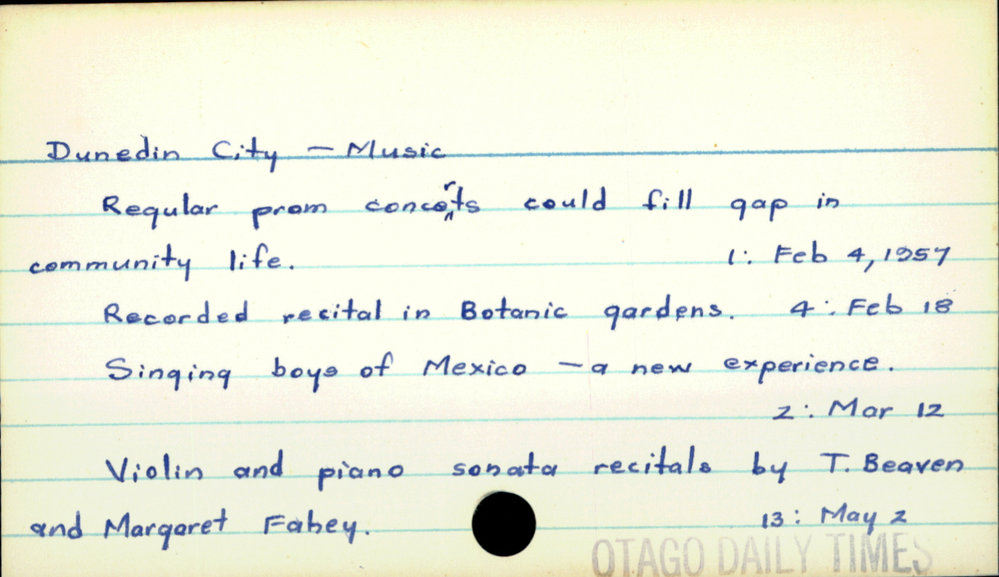 Dunedin City — Music
Regular prom concerts could fill gap in
community life. 1: Feb 4, 1957
Recorded recital in Botanic gardens. 4: Feb 18
Singing boys of Mexico — a new experience.
2: Mar 12
Violin and piano sonata recitals by T. Beaven
and Margaret Fahey. 13: May 2
OTAGO DAILY TIMES